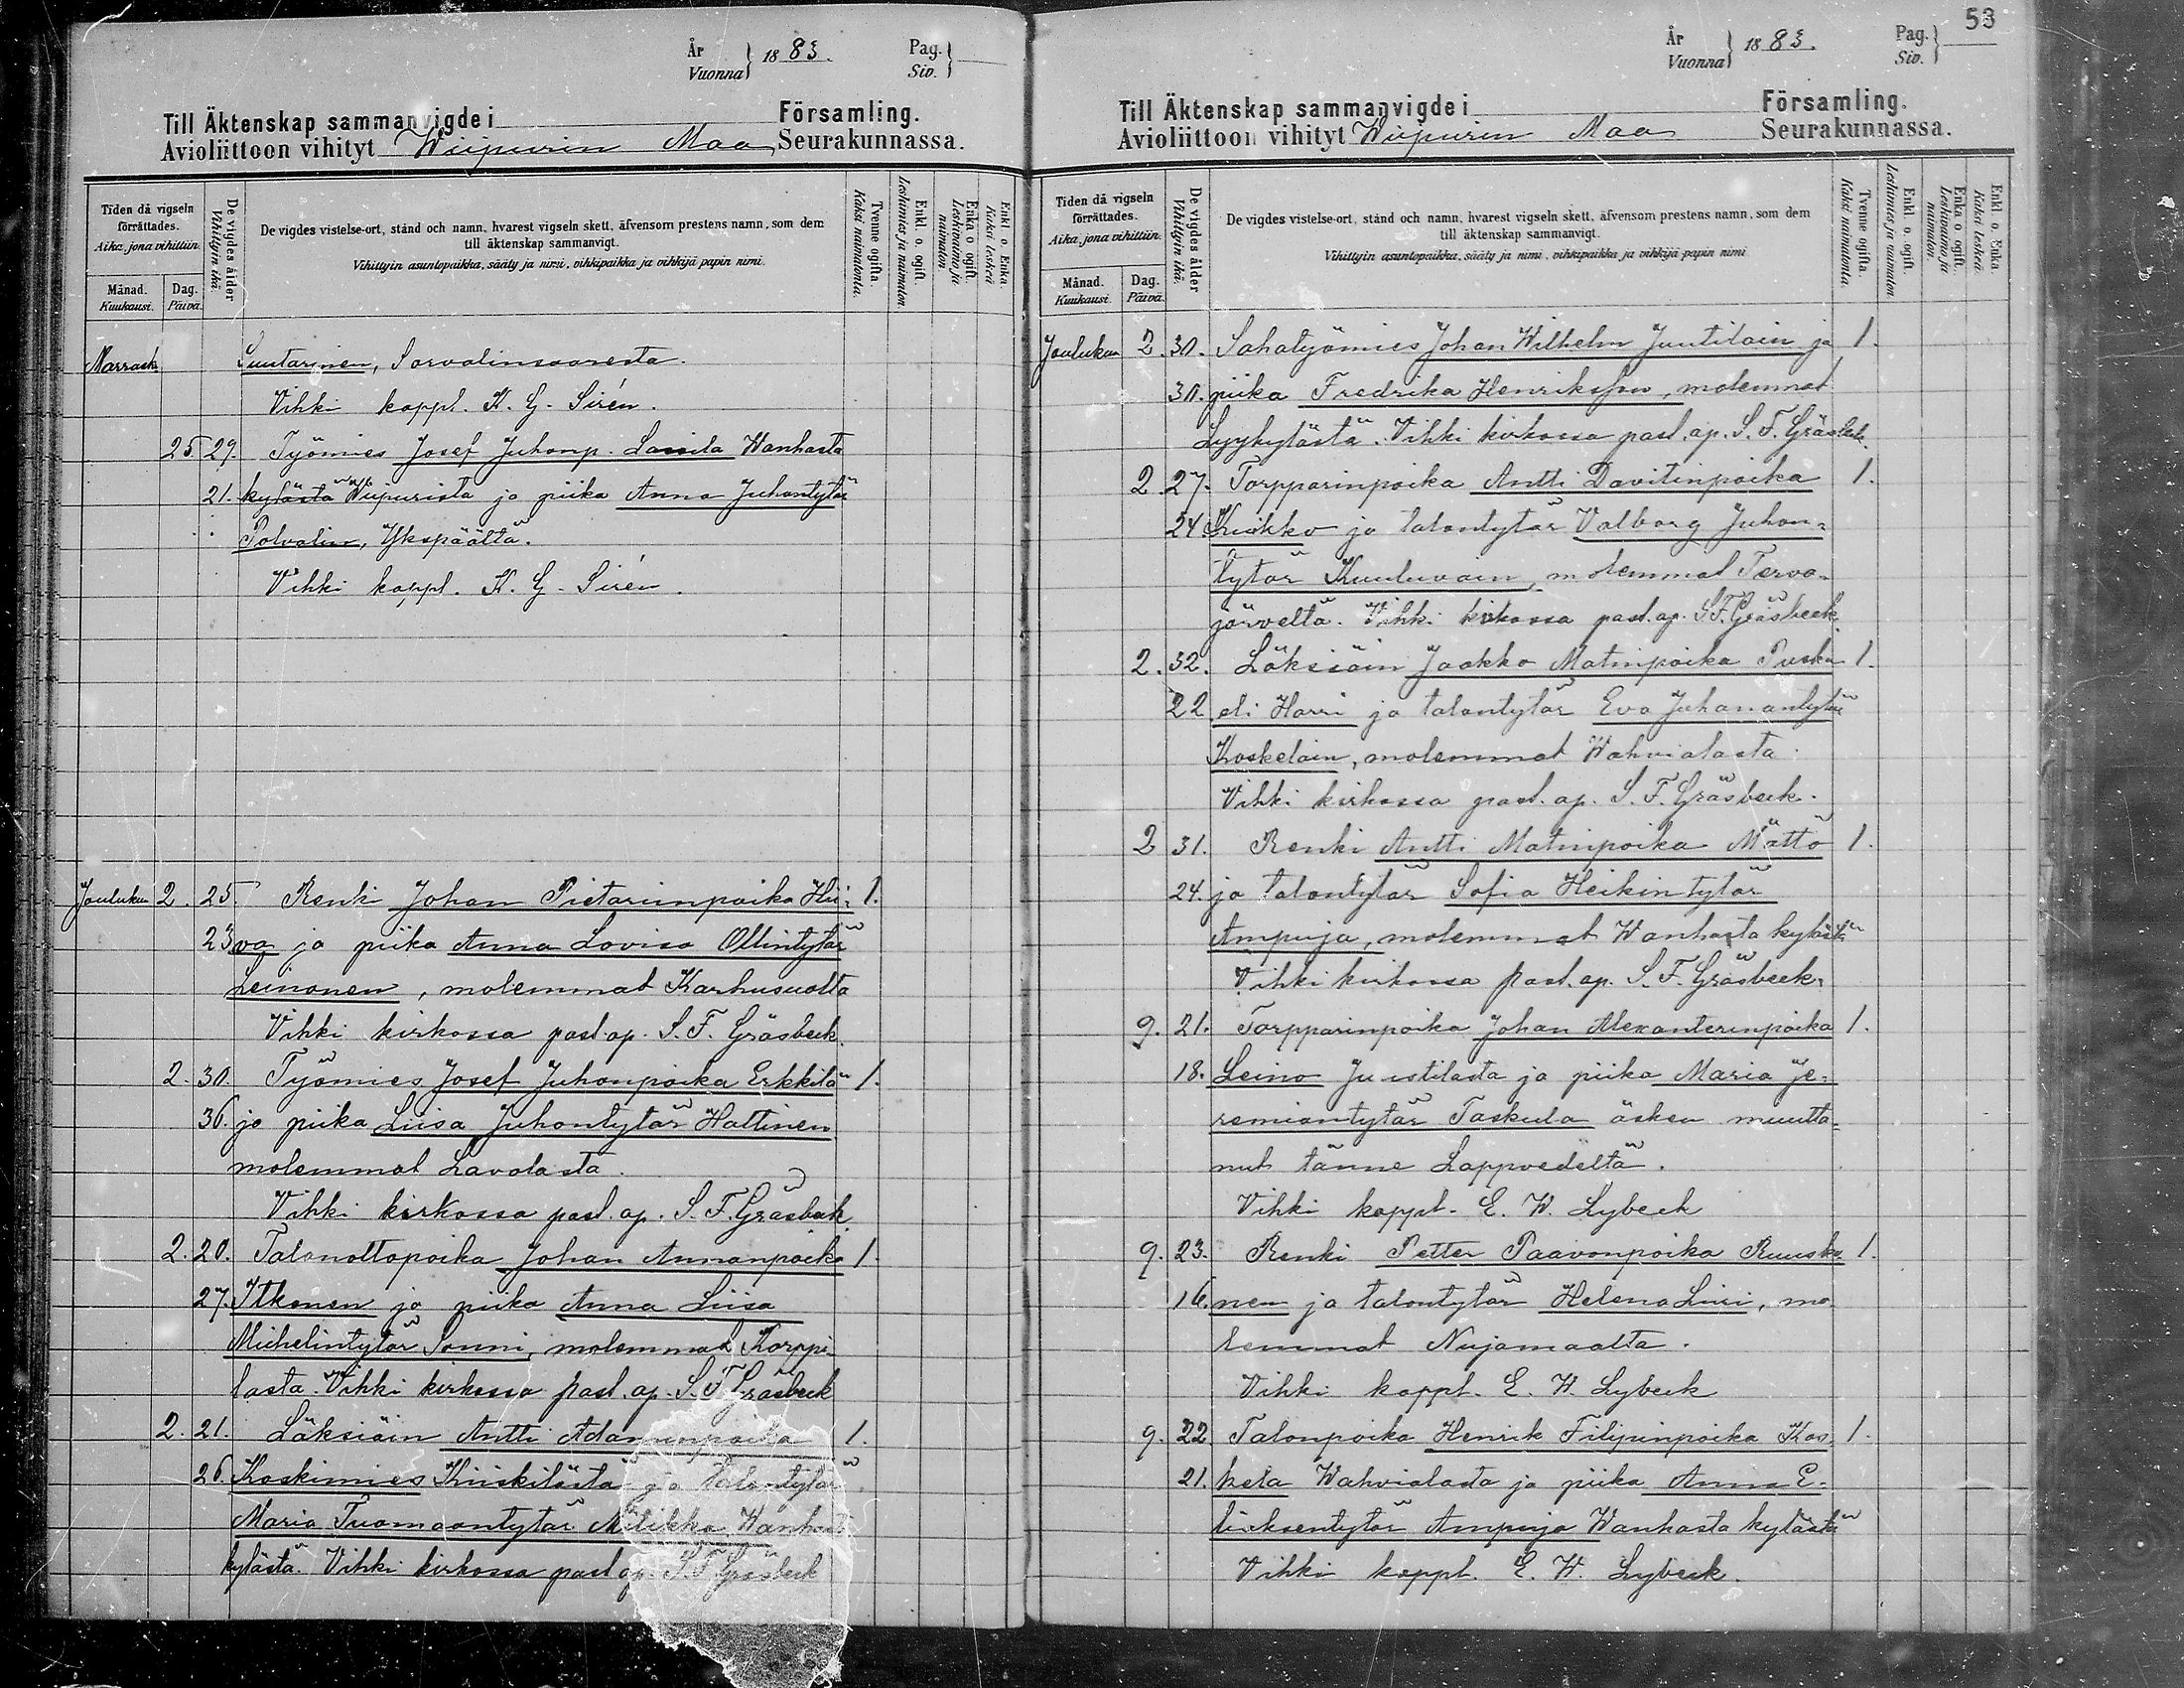 År
Vuonna } 1883.
Pag.
Siv. }
Till Äktenskap sammanvigde i Församling.
Avioliittoon vihityt Wiipurin Maa Seurakunnassa.
Tiden då vigseln förrättades.
Aika, jona vihittiin.
Månad.
Kuukausi.
Dag.
Päivä.
De vigdes ålder
Vihittyin ikä.
De vigdes vistelse-ort, stånd och namn, hvarest vigseln skett, äfvensom prestens namn, som dem
till äktenskap sammanvigt.
Vihittyin asuntopaikka, sääty ja nimi, vihkipaikka ja vihkijä papin nimi.
Tvenne ogifta.
Kaksi naimatonta.
Enkl. o. ogift.
Leskimies ja naimaton.
Enka o. ogift.
Leskivaimo ja naimaton.
Enkl. o. Enka.
Kaksi leskeä.
Marrask. Suutarinen, Sorvalinsaaresta.
Vihki kappl. K. G. Sirén.
25 29. Työmies Josef Juhonp. Lassila Wanhasta
21. kylästä Wiipurista ja piika Anna Juhontytär
Polvalin, Ykspäältä.
Vihki kappl. K. G. Sirén.
Jouluku 2. 25. Renki Johan Pietarinpoika Hii- 1.
23 va ja piika Anna Lovisa Ollintytär
Leinonen, molemmat Karhusuolta
Vihki kirkossa past. ap. S. F. Gräsbeck.
2. 30. Työmies Josef Juhonpoika Erkkilä 1.
36. ja piika Liisa Juhontytär Hattinen
molemmat Lavolasta.
Vihki kirkossa past. ap. S. F. Gräsbeck
2. 20. Talonottopoika Johan Annanpoika 1.
27. Itkonen ja piika Anna Liisa
Michelintytär Sonni, molemmat Korppi-
lasta. Vihki kirkossa past. ap. S. F. Gräsbeck
2. 21. Läksiäin Antti Adaminpoika 1.
26. Koskimies Kiiskilästä ja talontytär
Maria Tuomaantytär Mälikkä Wanhasta
kylästä. Vihki kirkossa past. ap. S. F. Gräsbeck
53
År
Vuonna } 1883.
Pag.
Siv. }
Till Äktenskap sammanvigde i Församling.
Avioliittoon vihityt Wiipurin Maa Seurakunnassa.
Tiden då vigseln förrättades.
Aika, jona vihittiin.
Månad.
Kuukausi.
Dag.
Päivä.
De vigdes ålder
Vihittyin ikä.
De vigdes vistelse-ort, stånd och namn, hvarest vigseln skett, äfvensom prestens namn, som dem
till äktenskap sammanvigt.
Vihittyin asuntopaikka, sääty ja nimi, vihkipaikka ja vihkijä papin nimi
Tvenne ogifta.
Kaksi naimatonta.
Enkl. o. ogift.
Leskimies ja naimaton.
Enka o. ogift.
Leskivaimo ja naimaton.
Enkl. o. Enka.
Kaksi leskeä.
Jouluku 2. 30. Sahatyömies Johan Wilhelm Juutilain ja 1.
30. piika Fredrika Henriksson, molemmat
Lyykylästä. Vihki kirkossa past. ap. S. F. Gräsbeck.
2. 27. Torpparinpoika Antti Davitinpoika 1.
24 Kuikko ja talontytär Valborg Juhon-
tytär Kuuluvain, molemmat Tervo-
järveltä. Vihki kirkossa past. ap. S. F. Gräsbeck
2. 32. Läksiäin Jaakko Matinpoika Puska 1.
22 eli Harri ja talontytär Eva Juhanantytär
Koskelain, molemmat Wahvialasta.
Vihki kirkossa past. ap. S. F. Gräsbeck.
2 31. Renki Antti Matinpoika Mättö 1.
24. ja talontytär Sofia Heikintytär
Ampuja, molemmat Wanhasta kylästä
Vihki kirkossa past. ap. S. F. Gräsbeck.
9. 21. Torpparinpoika Johan Alexanterinpoika 1.
18. Leino Juustilasta ja piika Maria Je-
remiantytär Taskula äsken muutta-
nut tänne Lappvedeltä.
Vihki kappl. E. W. Lybeck
9. 23. Renki Petter Paavonpoika Ruusko- 1.
16. nen ja talontytär Helena Liiri, mo-
lemmat Nuijamaalta.
Vihki kappl. E. W. Lybeck
9. 22 Talonpoika Henrik Filipinpoika Kos- 1.
21. kela Wahvialasta ja piika Anna E-
liaksentytär Ampuja Wanhasta kylästä
Vihki kappl. E. W. Lybeck.